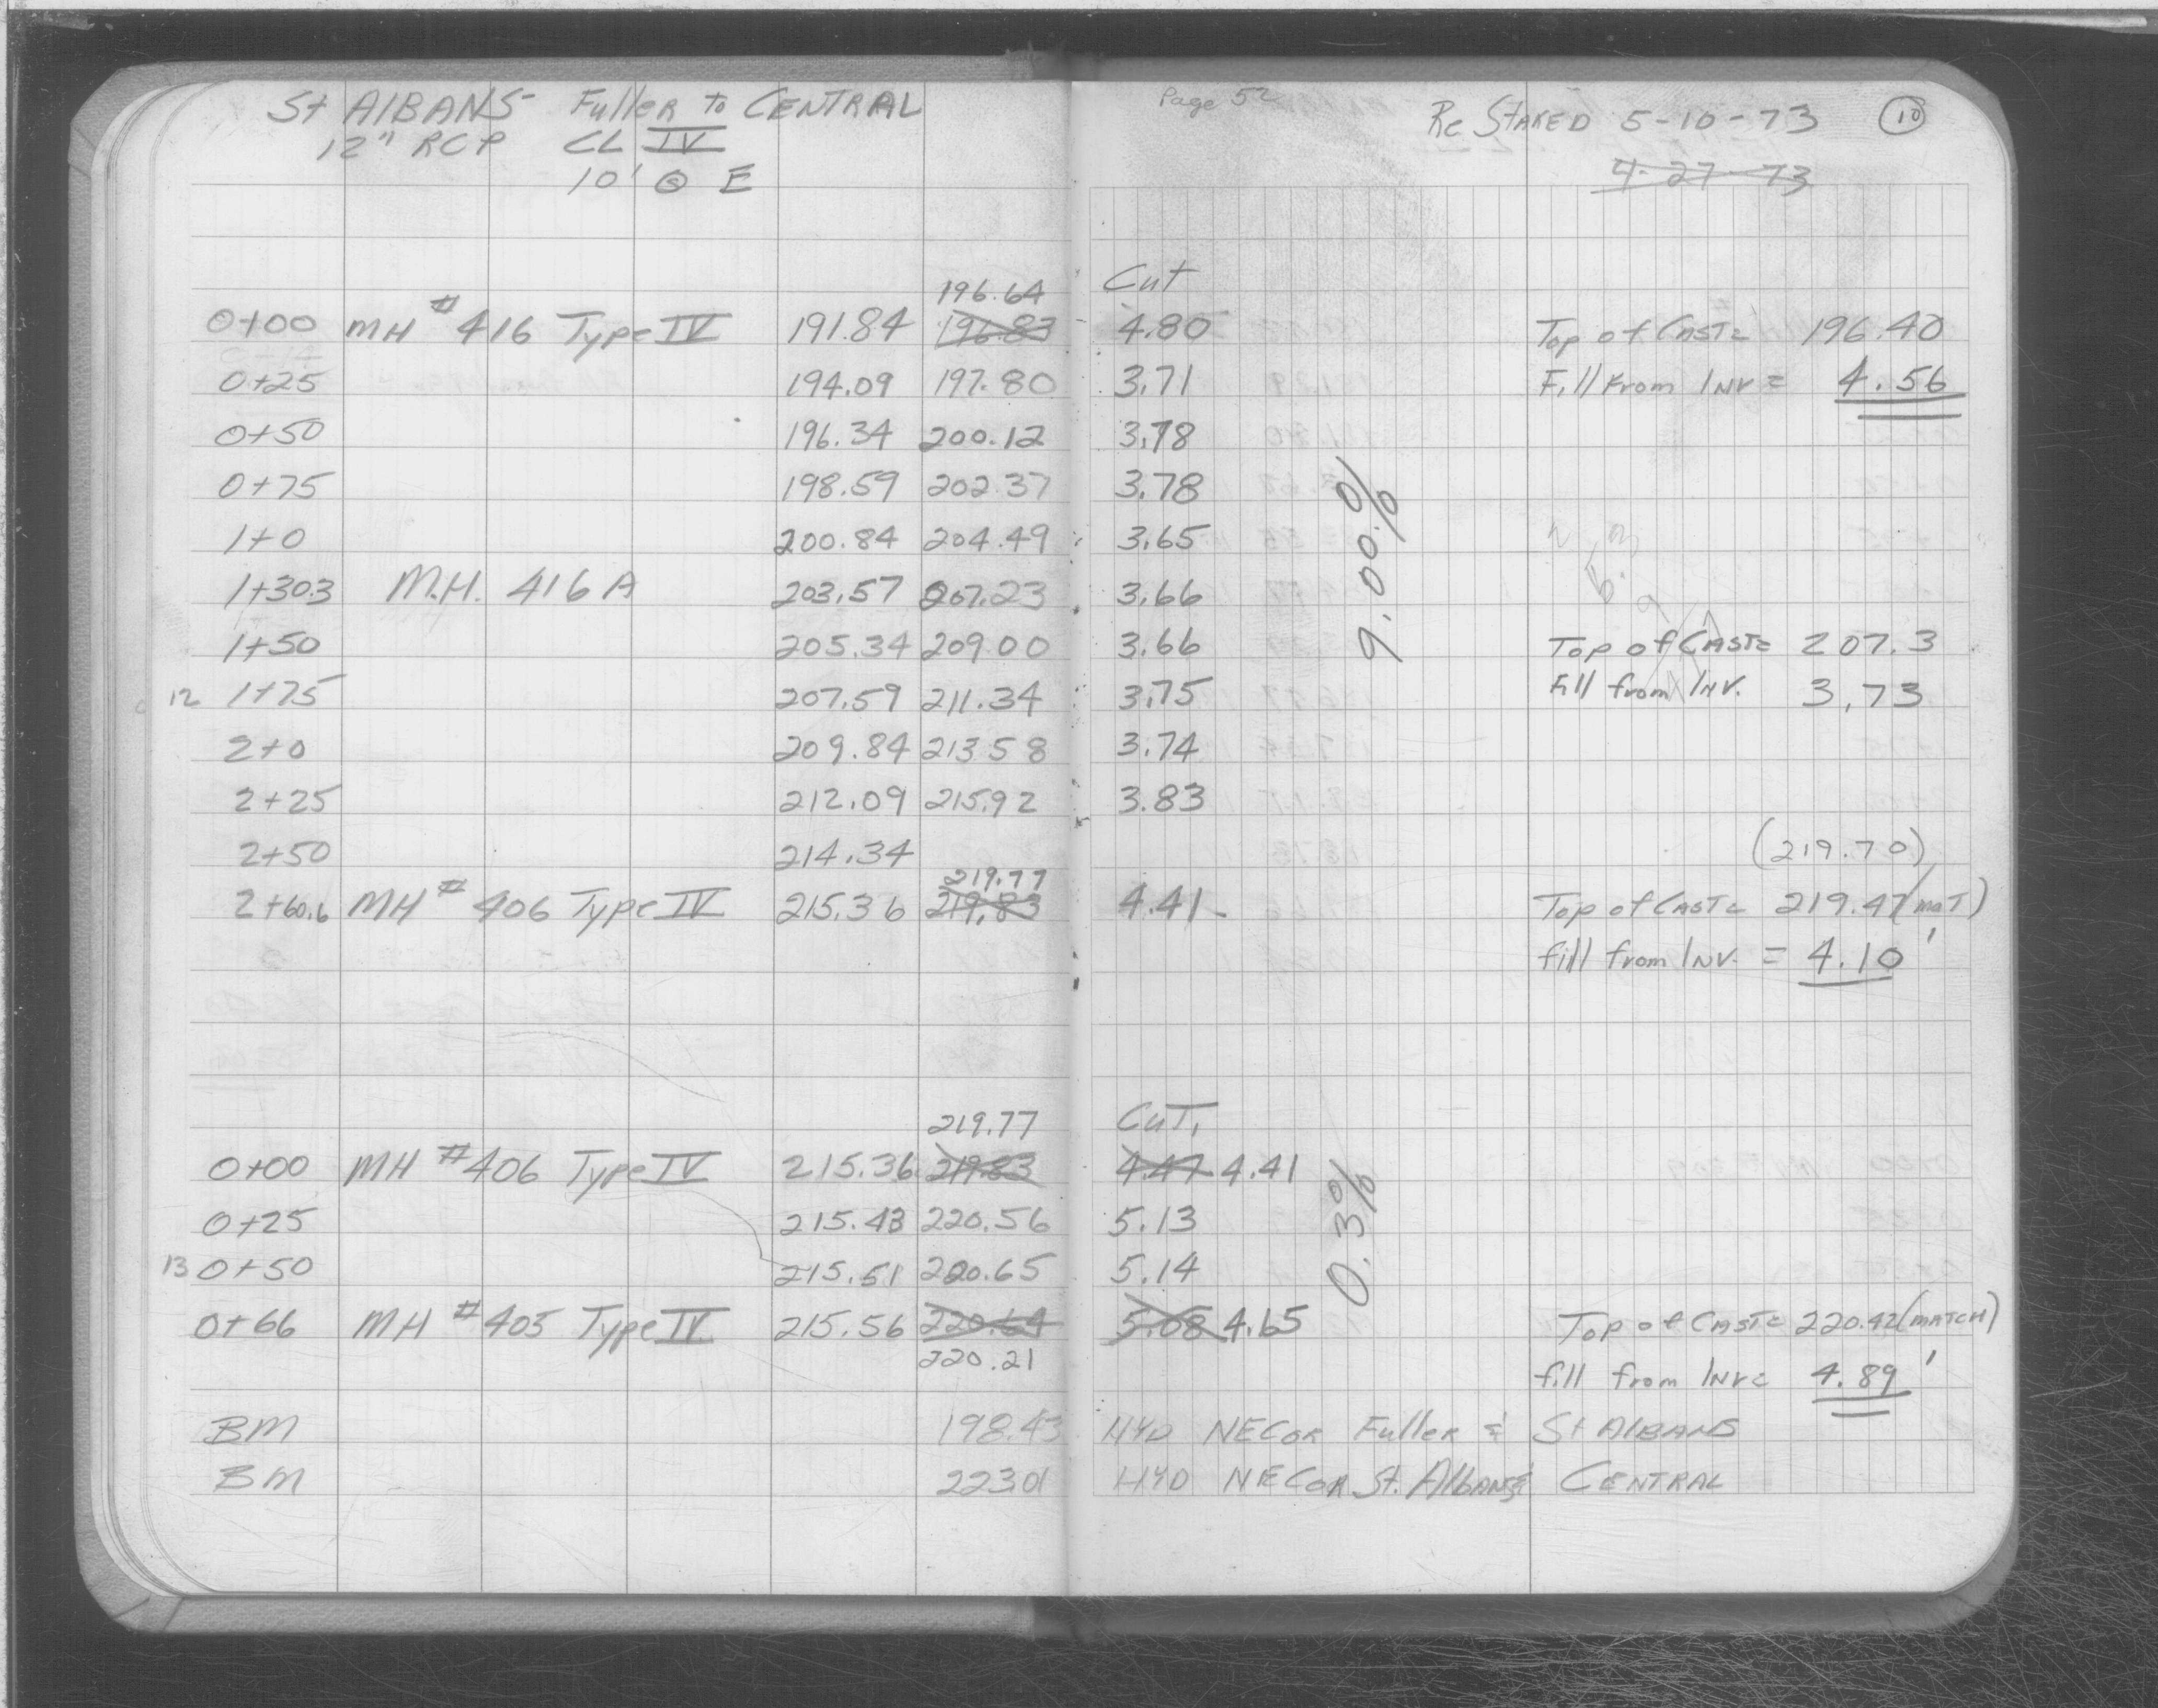 St ALBANS- Fuller to CENTRAL
12" RCP CL IV
10' @ E
Page 52
Re STAKED 5-10-73 10
4-27-73
196.64 Cut
0+00 MH #416 Type IV 191.84 196.83 4.80 Top of CAST= 196.40
0+25 194.09 197.80 3.71 Fill from INV = 4.56
0+50 196.34 200.12 3.78
0+75 198.59 202.37 3.78
1+0 200.84 204.49 3.65
9.00%
1+30.3 M.H. 416 A 203.57 207.23 3.66
1+50 205.34 209.00 3.66 Top of CAST= 207.3
12 1+75 207.59 211.34 3.75 Fill from INV. 3.73
2+0 209.84 213.58 3.74
2+25 212.09 215.92 3.83
2+50 214.34 (219.70)
219.77
2+60.6 MH #406 Type IV 215.36 219.83 4.41 Top of CAST= 219.47 (maT)
fill from INV. = 4.10'
219.77 CuT.
0+00 MH #406 Type IV 215.36 219.83 4.47 4.41
0+25 215.43 220.56 5.13
0.3%
13 0+50 215.51 220.65 5.14
0+66 MH #405 Type IV 215.56 220.64 5.08 4.65 Top of CAST= 220.42 (MATCH)
220.21 fill from INV= 4.89'
BM 198.43 HYD NECOR Fuller & St AlBANS
BM 223.01 HYD NECOR St. Albans & CENTRAL